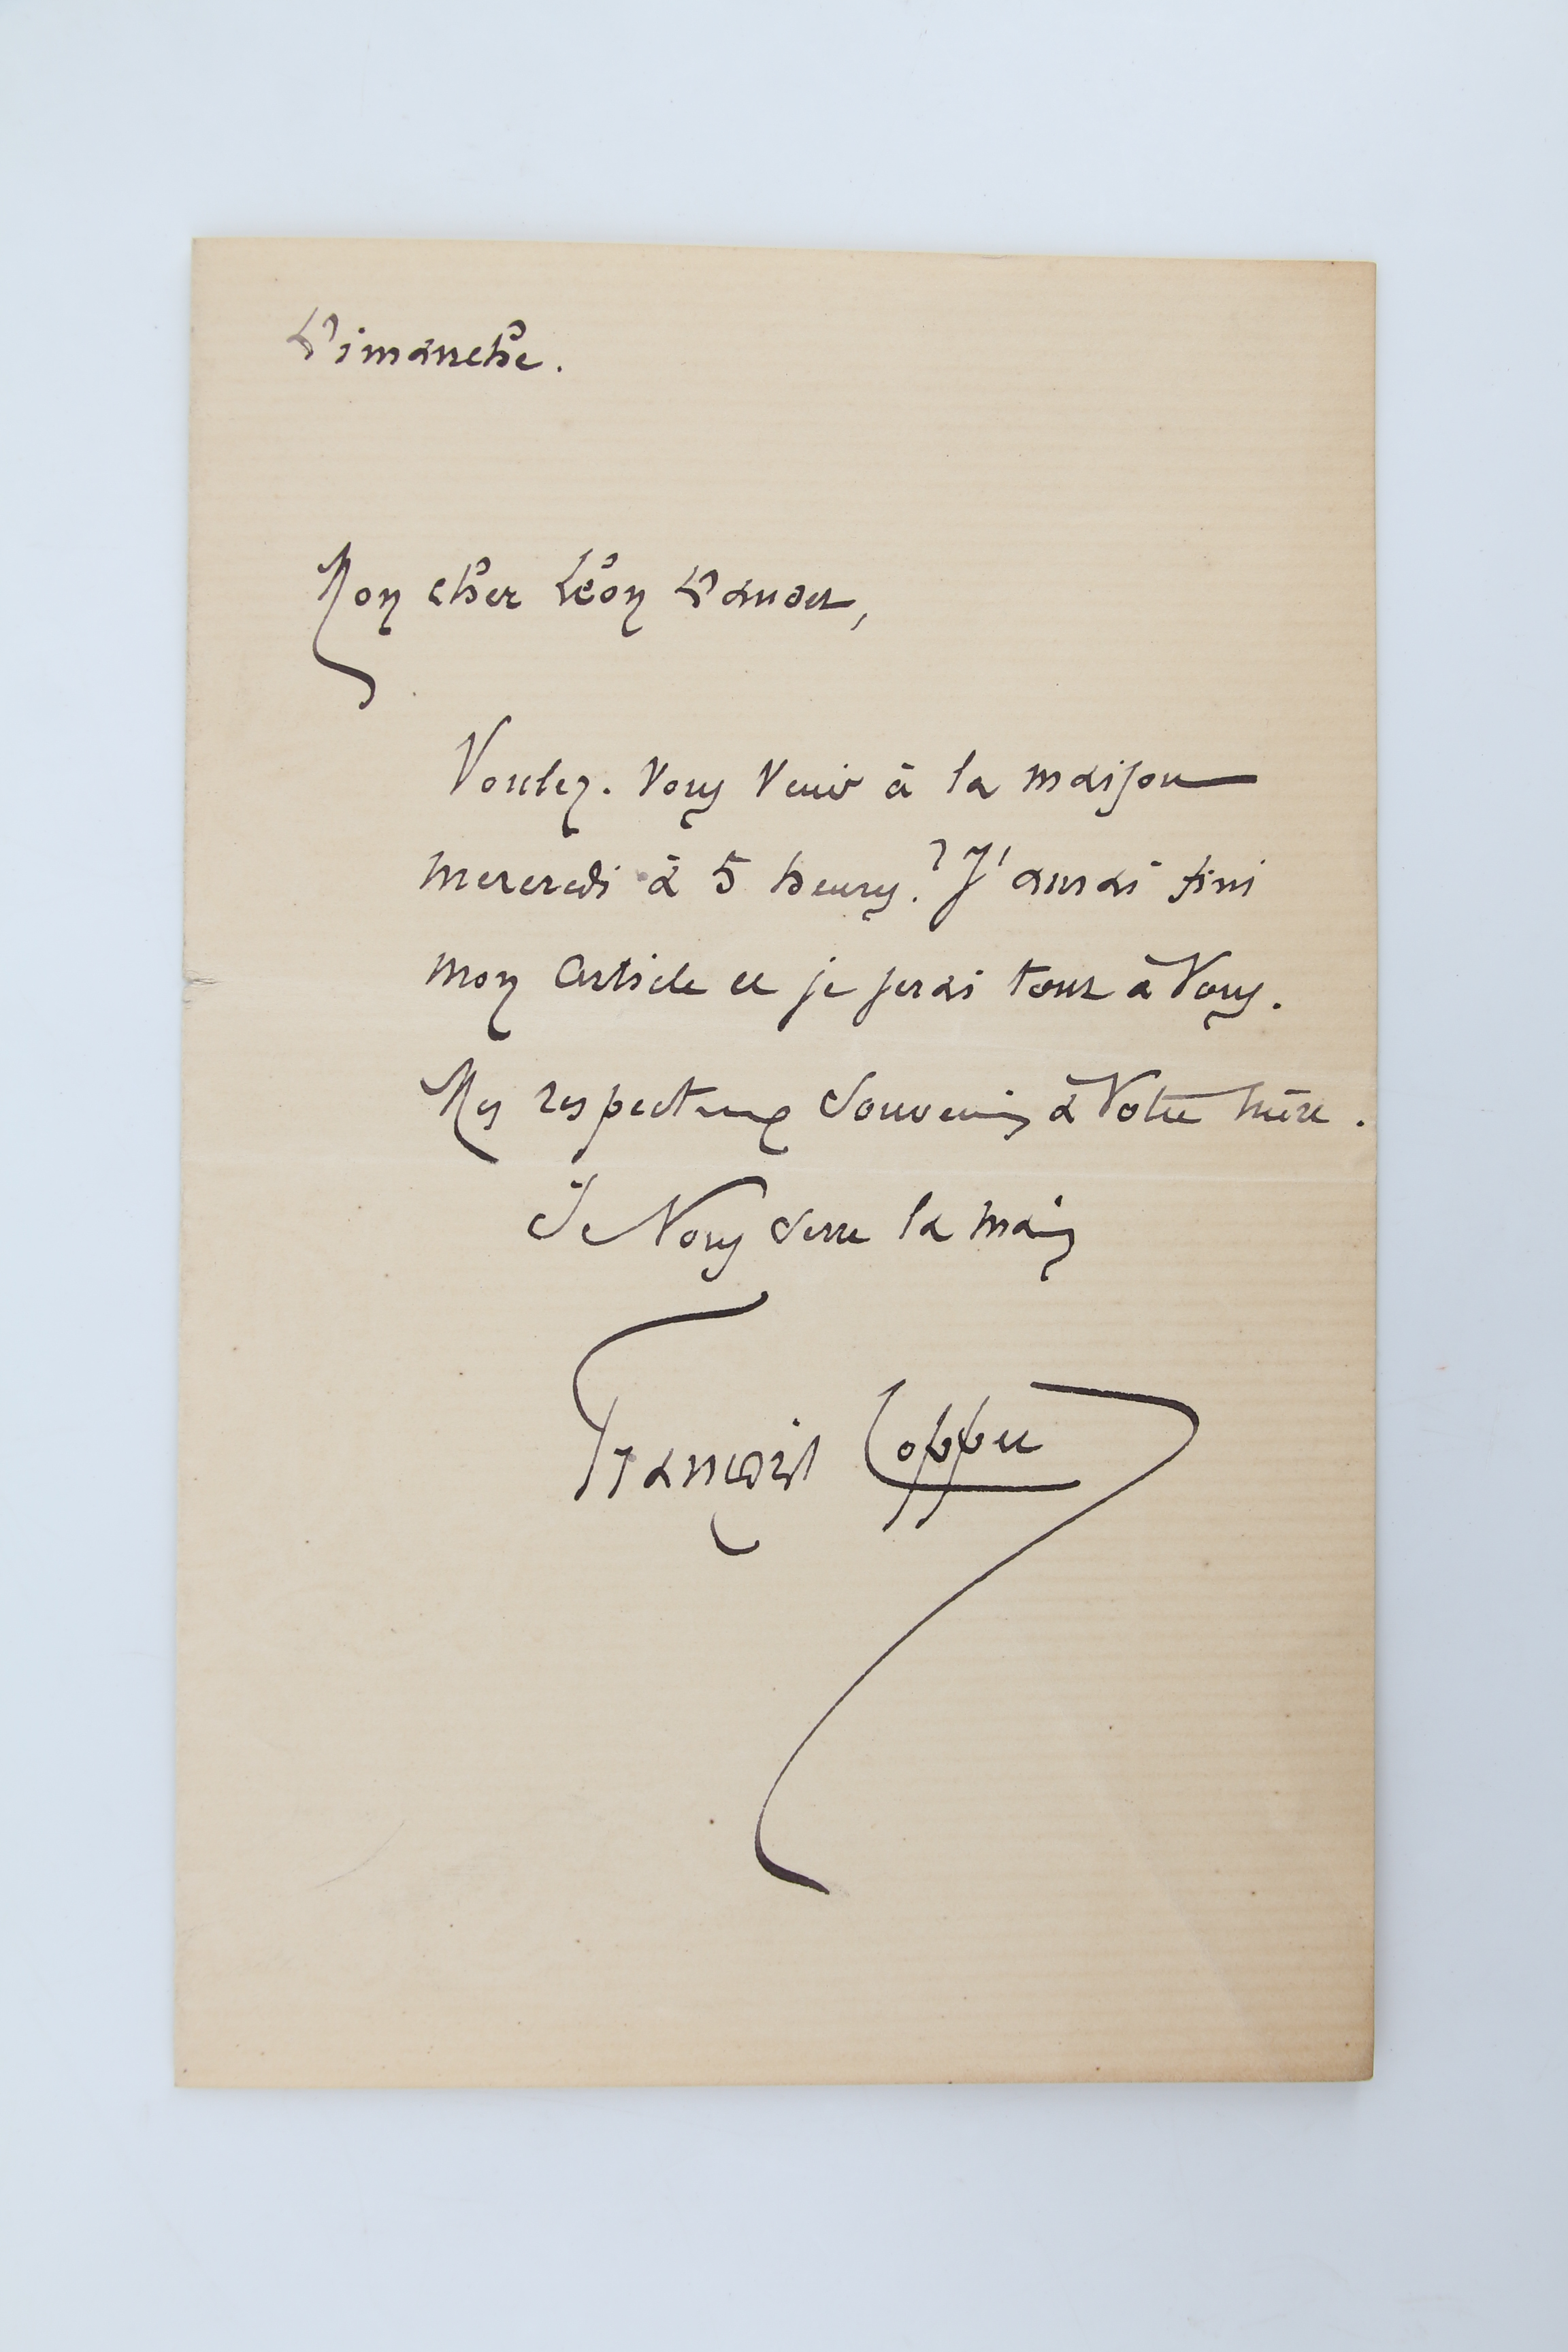 Dimanche.
Mon cher Léon Daudet,
Voulez-vous venir à la maison
mercredi à 5 heures? J'aurai fini
mon article et je serai tout à vous.
Mes respectueux souvenirs à votre mère.
Je vous serre la main
François Coppée